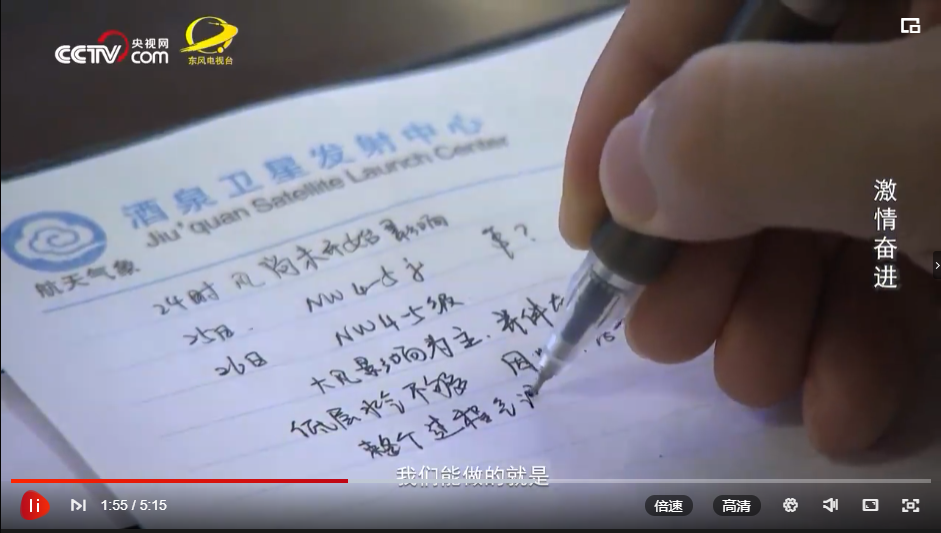 CCTV 央视网
com
东风电视台
激情奋进
酒泉卫星发射中心
Jiu'quan Satellite Launch Center
航天气象
24时 风尚未开始影响
25日. NW 4-5
26日 NW 4-5级
大风影响为主.
低层水汽不够
整个过程
我们能做的就是
1:55 / 5:15
倍速
高清